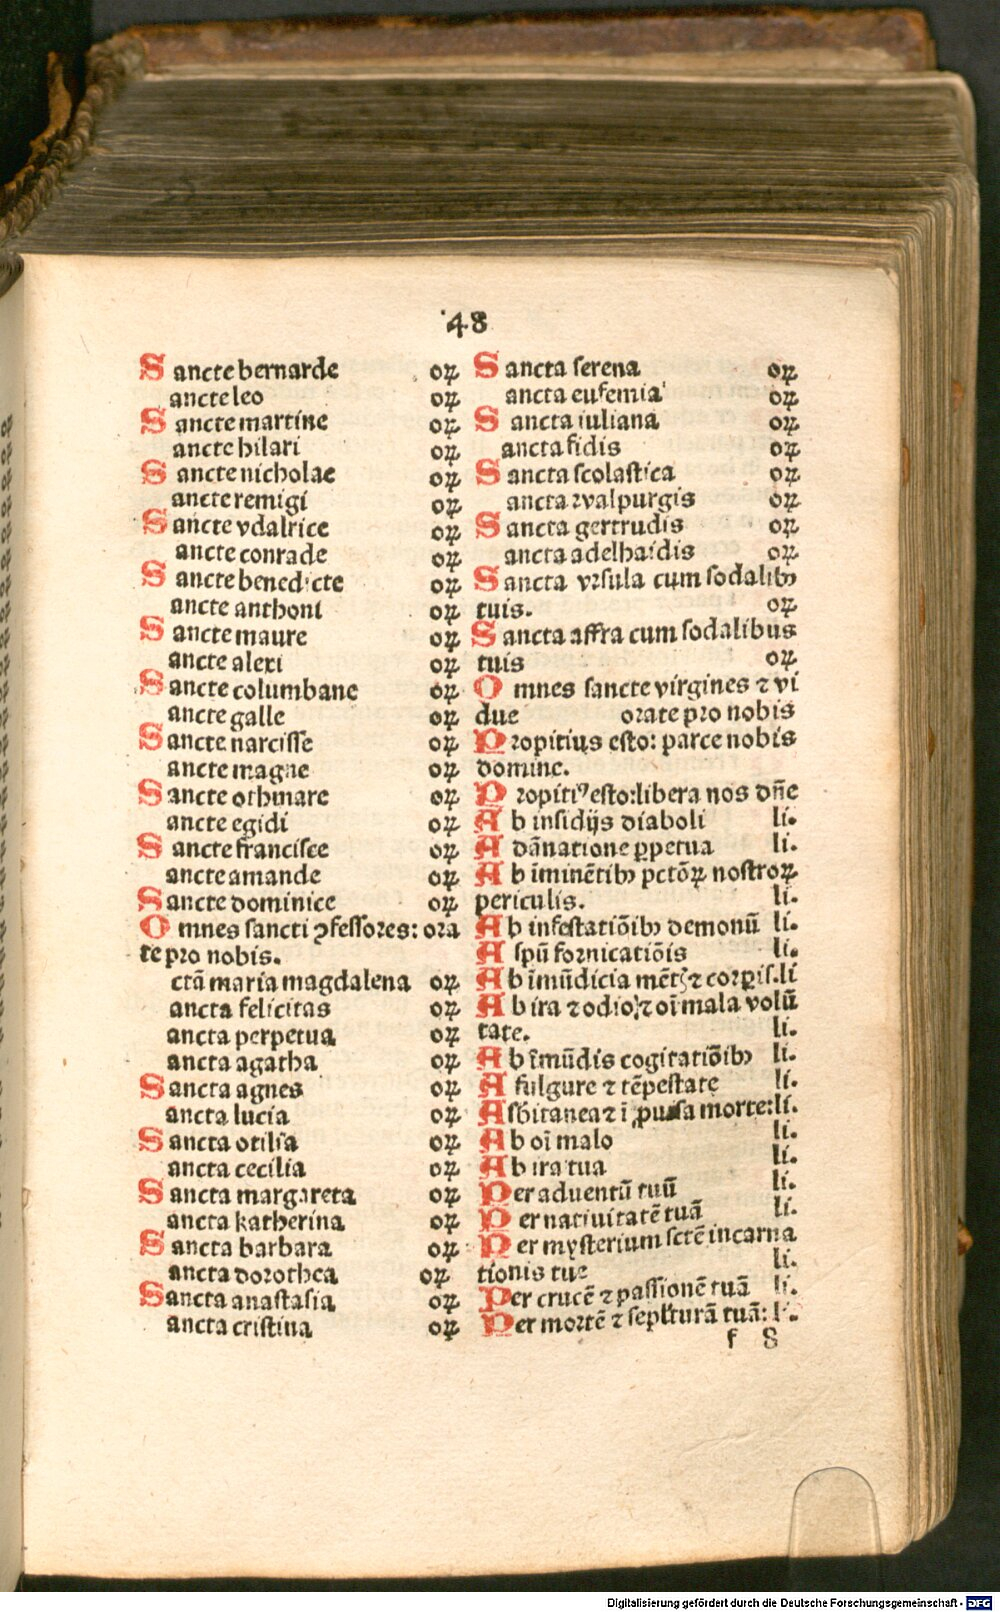 48
Sancte bernarde oꝝ
ancte leo oꝝ
Sancte martine oꝝ
ancte hilari oꝝ
Sancte nicholae oꝝ
ancte remigi oꝝ
Sancte vdalrice oꝝ
ancte conrade oꝝ
Sancte benedicte oꝝ
ancte anthoni oꝝ
Sancte maure oꝝ
ancte alexi oꝝ
Sancte columbane oꝝ
ancte galle oꝝ
Sancte narcisse oꝝ
ancte magne oꝝ
Sancte othmare oꝝ
ancte egidi oꝝ
Sancte francisce oꝝ
ancte amande oꝝ
Sancte dominice oꝝ
Omnes sancti ꝯfessores: ora
te pro nobis.
ctā maria magdalena oꝝ
ancta felicitas oꝝ
ancta perpetua oꝝ
ancta agatha oꝝ
Sancta agnes oꝝ
ancta lucia oꝝ
Sancta otilia oꝝ
ancta cecilia oꝝ
Sancta margareta oꝝ
ancta katherina oꝝ
Sancta barbara oꝝ
ancta dorothea oꝝ
Sancta anastasia oꝝ
ancta cristina oꝝ
Sancta serena oꝝ
ancta eufemia oꝝ
Sancta iuliana oꝝ
ancta fidis oꝝ
Sancta scolastica oꝝ
ancta walpurgis oꝝ
Sancta gertrudis oꝝ
ancta adelhaidis oꝝ
Sancta vrsula cum sodalibꝫ
tuis. oꝝ
Sancta affra cum sodalibus
tuis oꝝ
Omnes sancte virgines ⁊ vi
due orate pro nobis
Propitius esto: parce nobis
domine.
Propitiꝰ esto: libera nos dñe
Ab insidijs diaboli li.
A dānatione ꝑpetua li.
Ab iminētibꝫ pctōꝝ nostroꝝ
periculis. li.
Ab infestatiōibꝫ demonū li.
A spū fornicatiōis li.
Ab imūdicia mētꝭ ⁊ corꝑis. li
Ab ira ⁊ odio, ⁊ oī mala volū
tate. li.
Ab īmūdis cogitatiōibꝫ li.
A fulgure ⁊ tēpestate li.
A sbitanea ⁊ ī ꝓuisa morte: li.
Ab oī malo li.
Ab ira tua li.
Per aduentū tuū li.
Per natiuitatē tuā li.
Per mysterium sctē incarna
tionis tue li.
Per crucē ⁊ passionē tuā li.
Per mortē ⁊ sepłturā tuā: li.
f 8
Digitalisierung gefördert durch die Deutsche Forschungsgemeinschaft - DFG